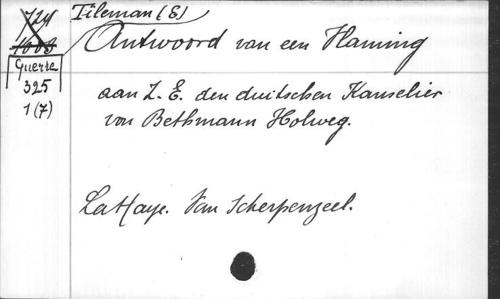 724
1003
Guerre
325
1(7)
Tileman (E)
Antwoord van een Flaming
aan Z. E. den duitschen Kanselier
von Bethmann Holweg.
La Haye. Van Scherpenzeel.